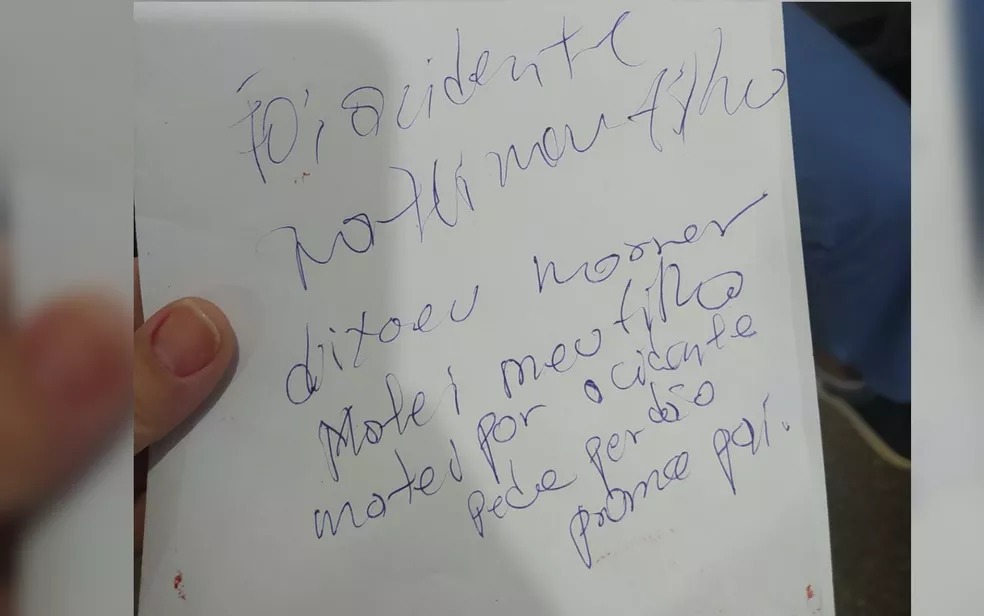 Foi, acidente
matei meu filho
dixoeu morrer
Matei meu filho
matei por acidente
pede perdão
prame pai.